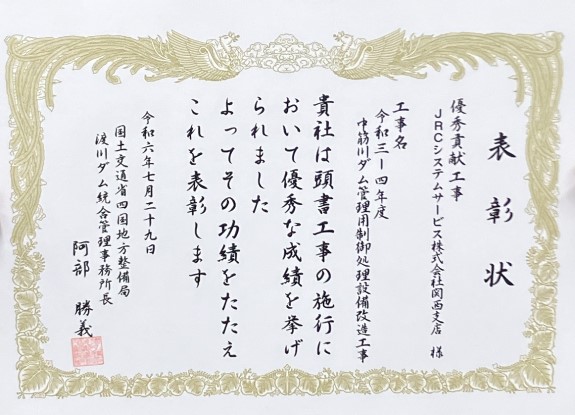 表彰状
優秀貢献工事
JRCシステムサービス株式会社関西支店 様
工事名
令和三ー四年度
中筋川ダム管理用制御処理設備改造工事
貴社は頭書工事の施行に
おいて優秀な成績を挙げ
られました
よってその功績をたたえ
これを表彰します
令和六年七月二十九日
国土交通省四国地方整備局
渡川ダム統合管理事務所長
阿部 勝義